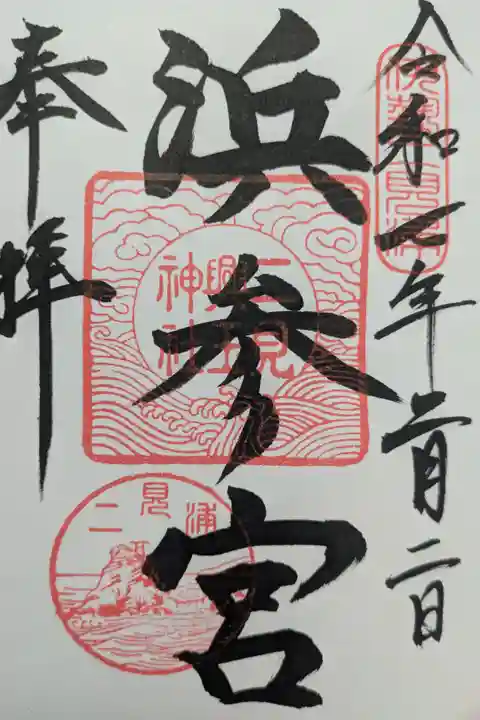 令和七年二月二日
伊勢二見浦
浜参宮
二見
興玉
神社
奉拝
二見浦